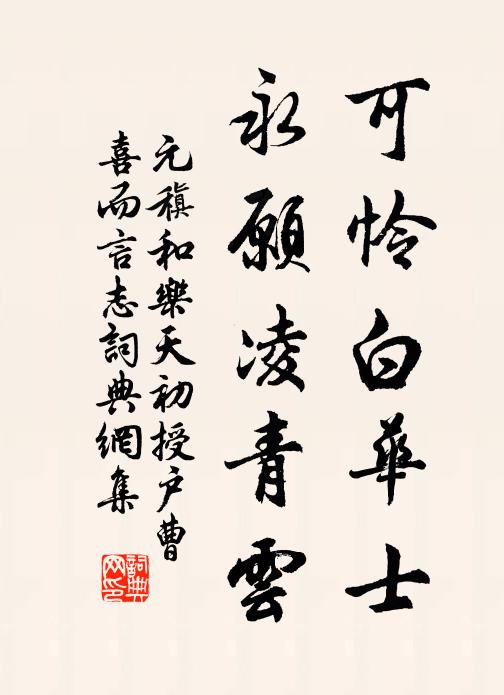 可憐白華士
永願凌青雲
元稹和樂天初授户曹
喜而言志詞典網集
詞典网印